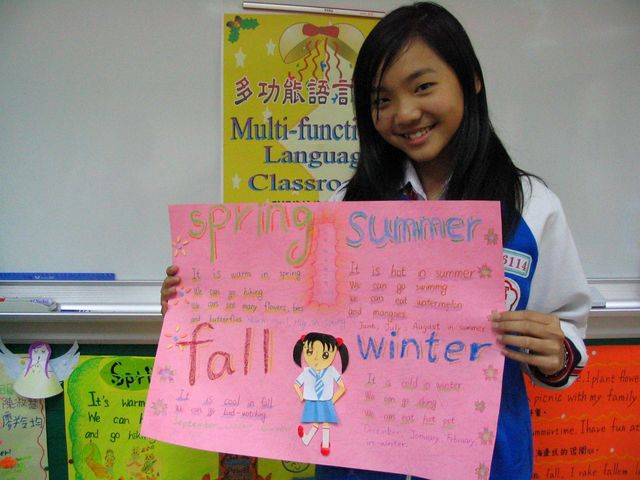 多功能語言
Multi-functi
Language
Classroo
6114
spring
It is warm in spring
We can go hiking
We can see many flowers, bees
and butterflies
summer
It is hot in summer
We can go swimming
We can eat watermelon
and mangoes
June, July, August in summer
fall
It is cool in fall
We can go bird-watching
September
winter
It is cold in winter.
We can go skiing
We can eat hot pot
December, January, February,
in winter.
Spri
It's warm
We can h
and go hiki
I plant flowe
picnic with my family
mmertime. I have fun at
n fall, I rake fallen l